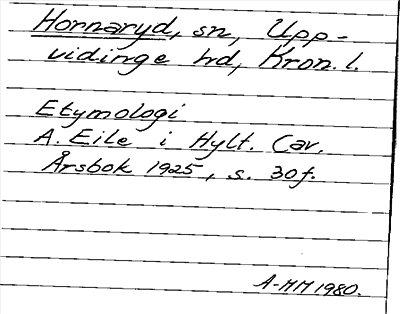 Hornaryd, sn, Upp-
vidinge hd, Kron. l.
Etymologi
A. Eile i Hylt. Cav.
Årsbok 1925, s. 30 f.
A-MM 1980.